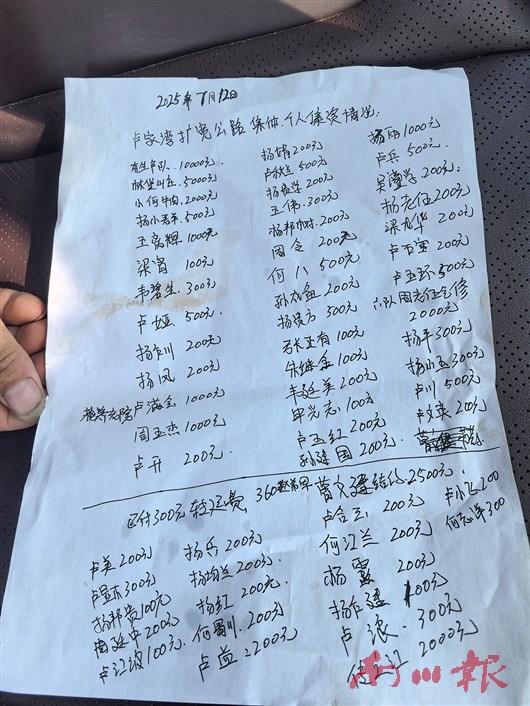 2025年1月12日
卢家湾扩宽公路集体、个人集资情况:
10000元
林堡山庄 5000元
小何牛肉 2000元
杨小老平 500元
王富辉 1000元
梁富 100元
韦碧生 300元
卢娅 500元
杨东川 200元
杨凤 200元
卢满全 1000元
周玉杰 1000元
卢开 200元
杨靖 200元
卢秋兰 500元
杨俊学 200元
王伟 300元
杨邦树 200元
周令 200元
何八 500元
孙成金 200元
杨贤方 500元
石长正有 100元
朱继全 100元
韦廷英 200元
申光元 100元
卢玉红 200元
孙廷国 200元
杨朋 1000元
卢兵 500元
吴远学 200元
杨老伍 200元
梁龙华 200元
卢玉室 200元
卢玉环 500元
六队周老伍气修
2000元
杨平 300元
杨小玉 300元
卢川 500元
卢文英 200元
已付300元转运费 360 2500元
卢英 200元
300元
杨邦贵 100元
周廷中 200元
卢江波 100元
杨兵 200元
杨均兰 200元
杨红 200元
何蜀川 200元
卢益 2200元
卢合云 200元
何江兰 200元
杨霞 200元
杨廷 100元
卢浪 300元
2000元
卢小飞 200
何志平 300
南州報